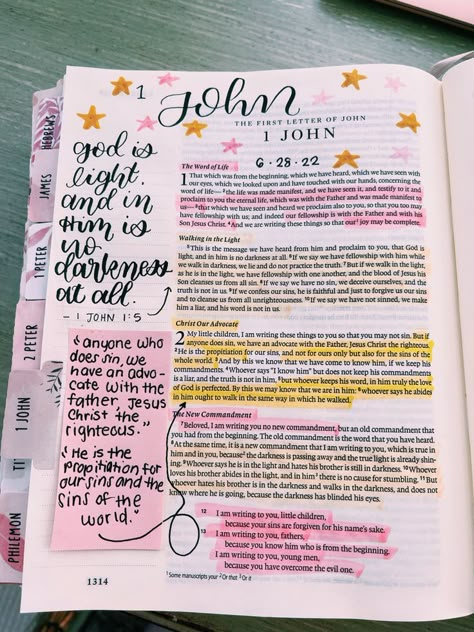 1 John
THE FIRST LETTER OF JOHN
1 JOHN
6·28·22
HEBREWS
JAMES
1 PETER
2 PETER
1 JOHN
TI
PHILEMON
god is
light.
and in
Him is
no
darkness
at all.
- 1 JOHN 1:5
"anyone who
does sin, we
have an advo-
cate with the
father, Jesus
Christ the
righteous."
"He is the
propitation for
our sins and the
sins of the
world."
The Word of Life
1 That which was from the beginning, which we have heard, which we have seen with
our eyes, which we looked upon and have touched with our hands, concerning the
word of life— 2 the life was made manifest, and we have seen it, and testify to it and
proclaim to you the eternal life, which was with the Father and was made manifest to
us— 3 that which we have seen and heard we proclaim also to you, so that you too may
have fellowship with us; and indeed our fellowship is with the Father and with his
Son Jesus Christ. 4 And we are writing these things so that our 1 joy may be complete.
Walking in the Light
5 This is the message we have heard from him and proclaim to you, that God is
light, and in him is no darkness at all. 6 If we say we have fellowship with him while
we walk in darkness, we lie and do not practice the truth. 7 But if we walk in the light,
as he is in the light, we have fellowship with one another, and the blood of Jesus his
Son cleanses us from all sin. 8 If we say we have no sin, we deceive ourselves, and the
truth is not in us. 9 If we confess our sins, he is faithful and just to forgive us our sins
and to cleanse us from all unrighteousness. 10 If we say we have not sinned, we make
him a liar, and his word is not in us.
Christ Our Advocate
2 My little children, I am writing these things to you so that you may not sin. But if
anyone does sin, we have an advocate with the Father, Jesus Christ the righteous.
2 He is the propitiation for our sins, and not for ours only but also for the sins of the
whole world. 3 And by this we know that we have come to know him, if we keep his
commandments. 4 Whoever says "I know him" but does not keep his commandments
is a liar, and the truth is not in him, 5 but whoever keeps his word, in him truly the love
of God is perfected. By this we may know that we are in him: 6 whoever says he abides
in him ought to walk in the same way in which he walked.
The New Commandment
7 Beloved, I am writing you no new commandment, but an old commandment that
you had from the beginning. The old commandment is the word that you have heard.
8 At the same time, it is a new commandment that I am writing to you, which is true in
him and in you, because 2 the darkness is passing away and the true light is already shin-
ing. 9 Whoever says he is in the light and hates his brother is still in darkness. 10 Whoever
loves his brother abides in the light, and in him 3 there is no cause for stumbling. 11 But
whoever hates his brother is in the darkness and walks in the darkness, and does not
know where he is going, because the darkness has blinded his eyes.
12 I am writing to you, little children,
because your sins are forgiven for his name's sake.
13 I am writing to you, fathers,
because you know him who is from the beginning.
I am writing to you, young men,
because you have overcome the evil one.
1 Some manuscripts your 2 Or that 3 Or it
1314